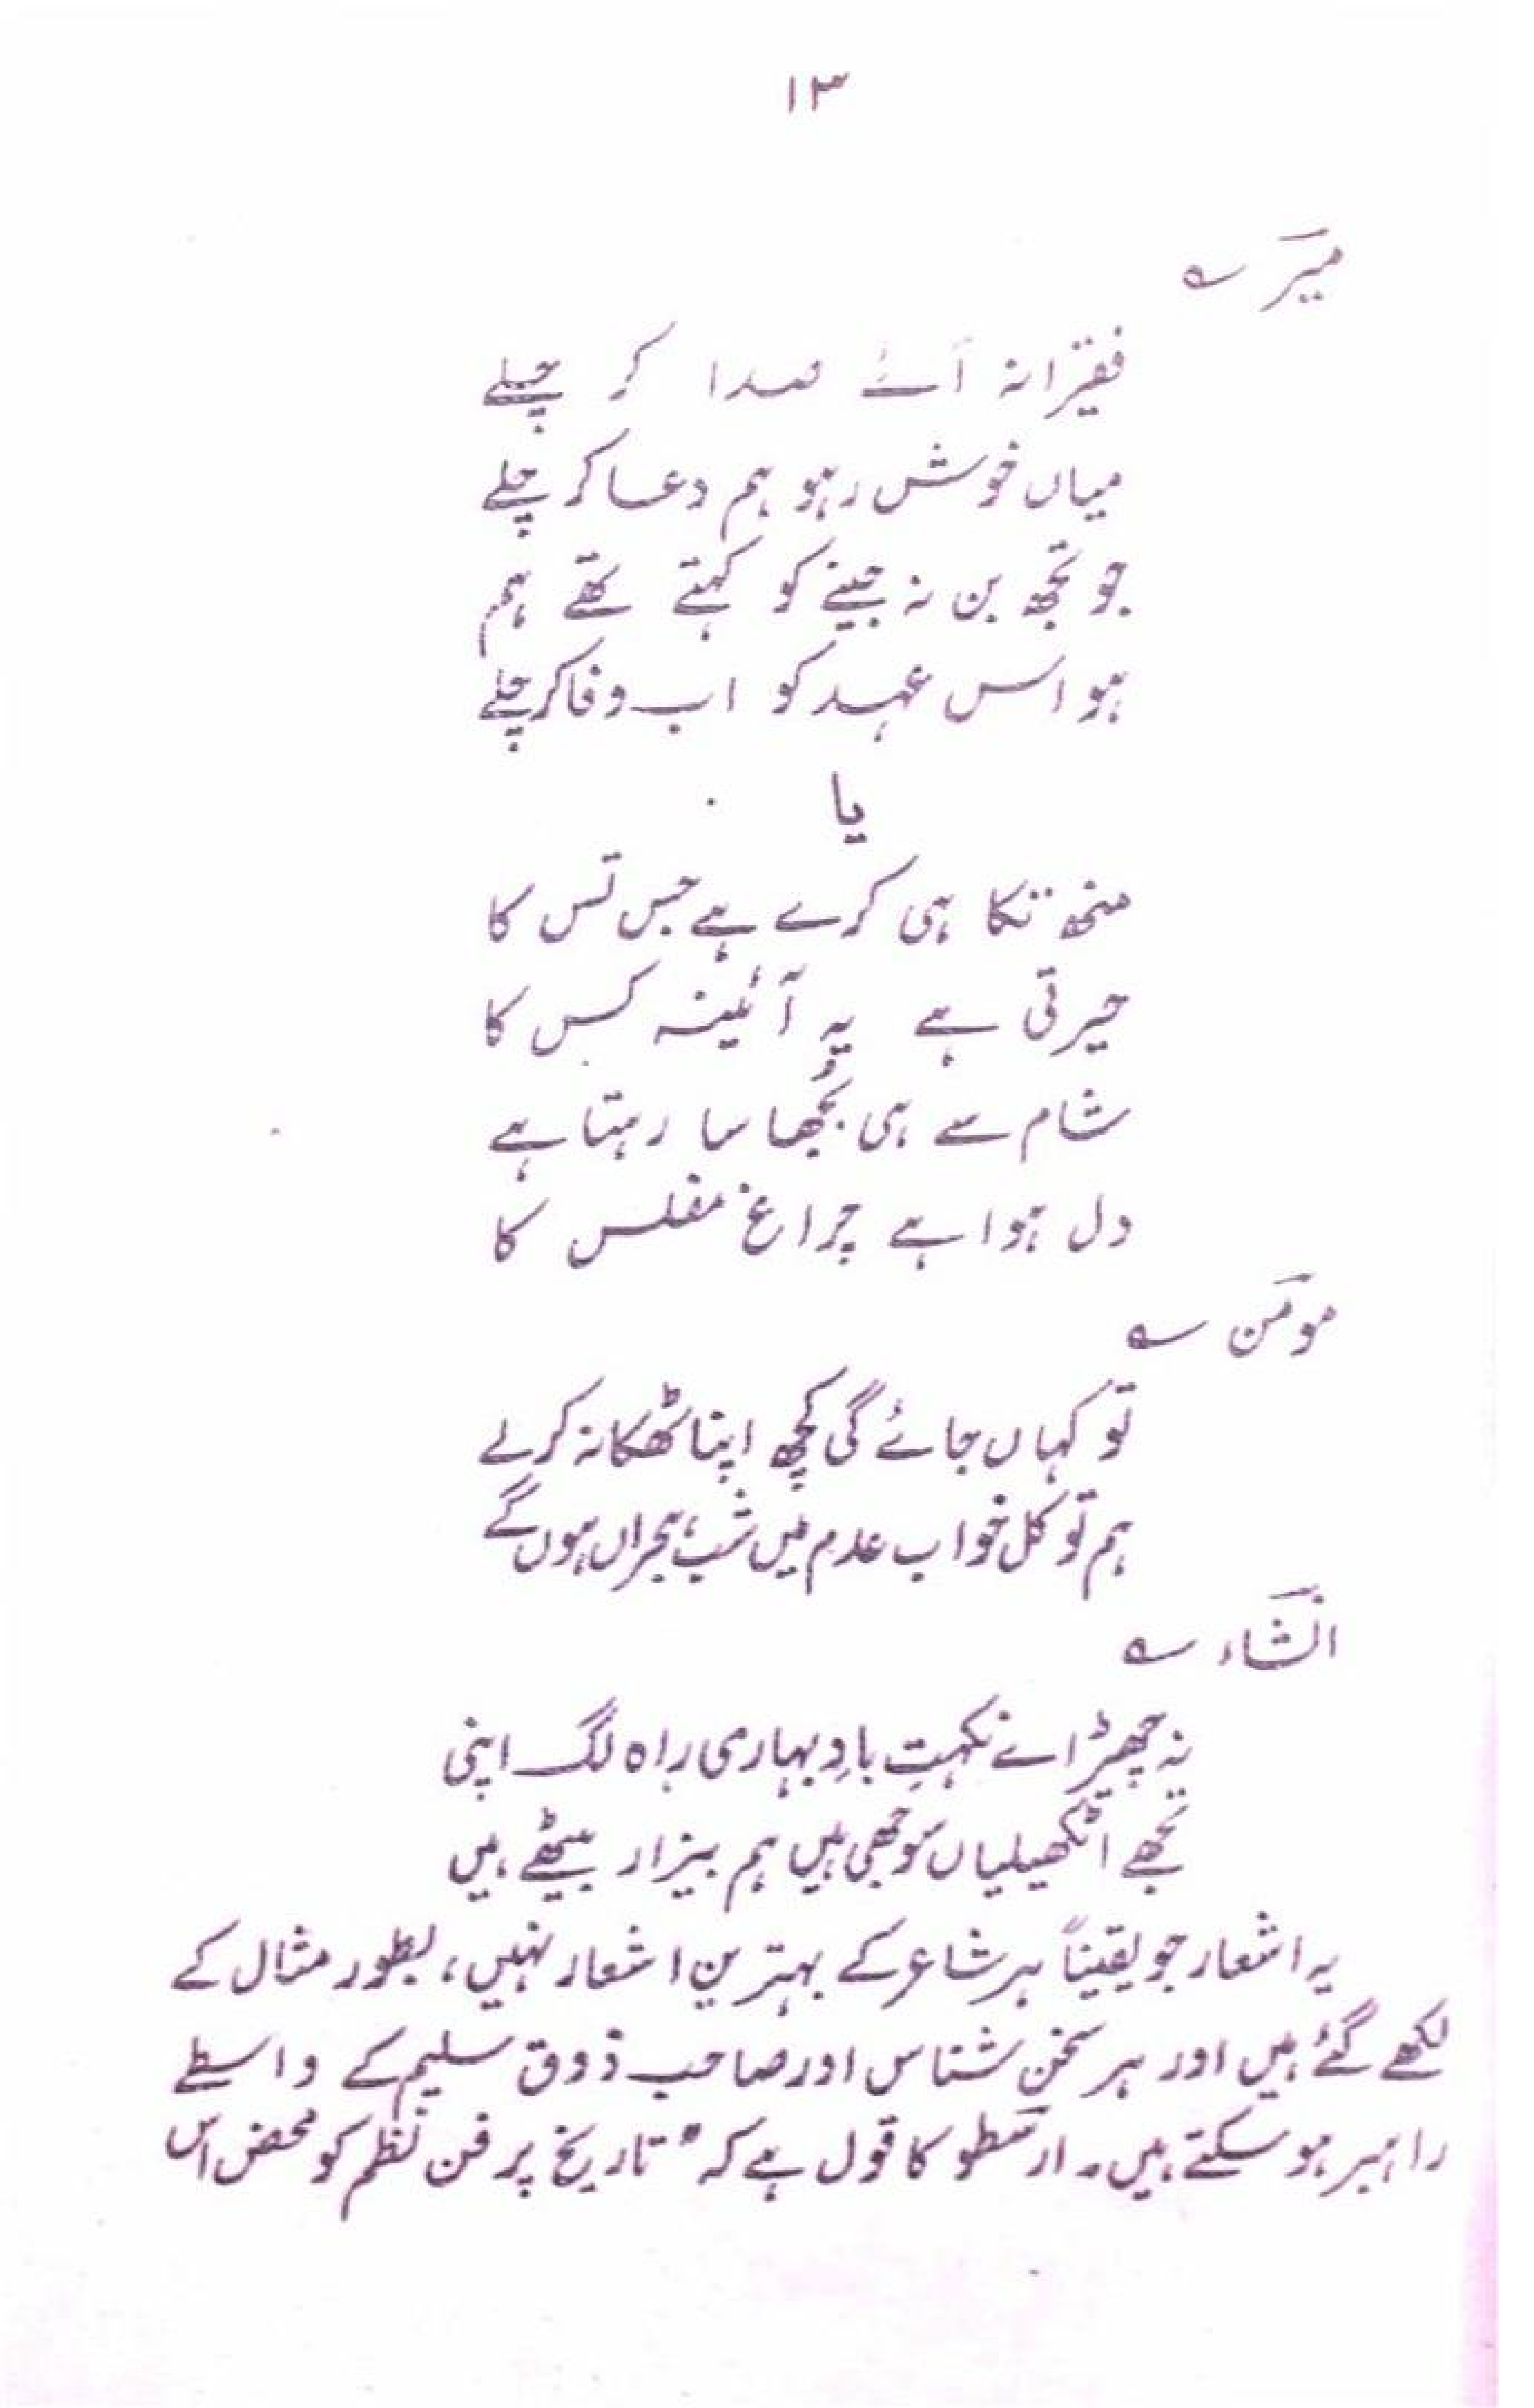 ۱۳
میرؔ ؎
فقیرانہ آئے صدا کر چلے
میاں خوش رہو ہم دعا کر چلے
جو تجھ بن نہ جینے کو کہتے تھے ہم
ہو اس عہد کو اب وفا کر چلے
یا
منھ تکا ہی کرے ہے جس تس کا
حیرتی ہے یہ آئینہ کس کا
شام سے ہی بُجھا سا رہتا ہے
دل ہوا ہے چراغ مفلس کا
مومنؔ ؎
تو کہاں جائے گی کچھ اپنا ٹھکانہ کرلے
ہم تو کل خواب عدم میں شبِ ہجراں ہوں گے
انشاءؔ ؎
نہ چھیڑ اے نکہتِ بادِ بہاری راہ لگ اپنی
تجھے اٹکھیلیاں سوجھی ہیں ہم بیزار بیٹھے ہیں
یہ اشعار جو یقیناً ہر شاعر کے بہترین اشعار نہیں، بطور مثال کے
لکھے گئے ہیں اور ہر سخن شناس اور صاحب ذوق سلیم کے واسطے
راہبر ہو سکتے ہیں۔ ارسطوؔ کا قول ہے کہ "تاریخ پر فن نظم کو محض اس